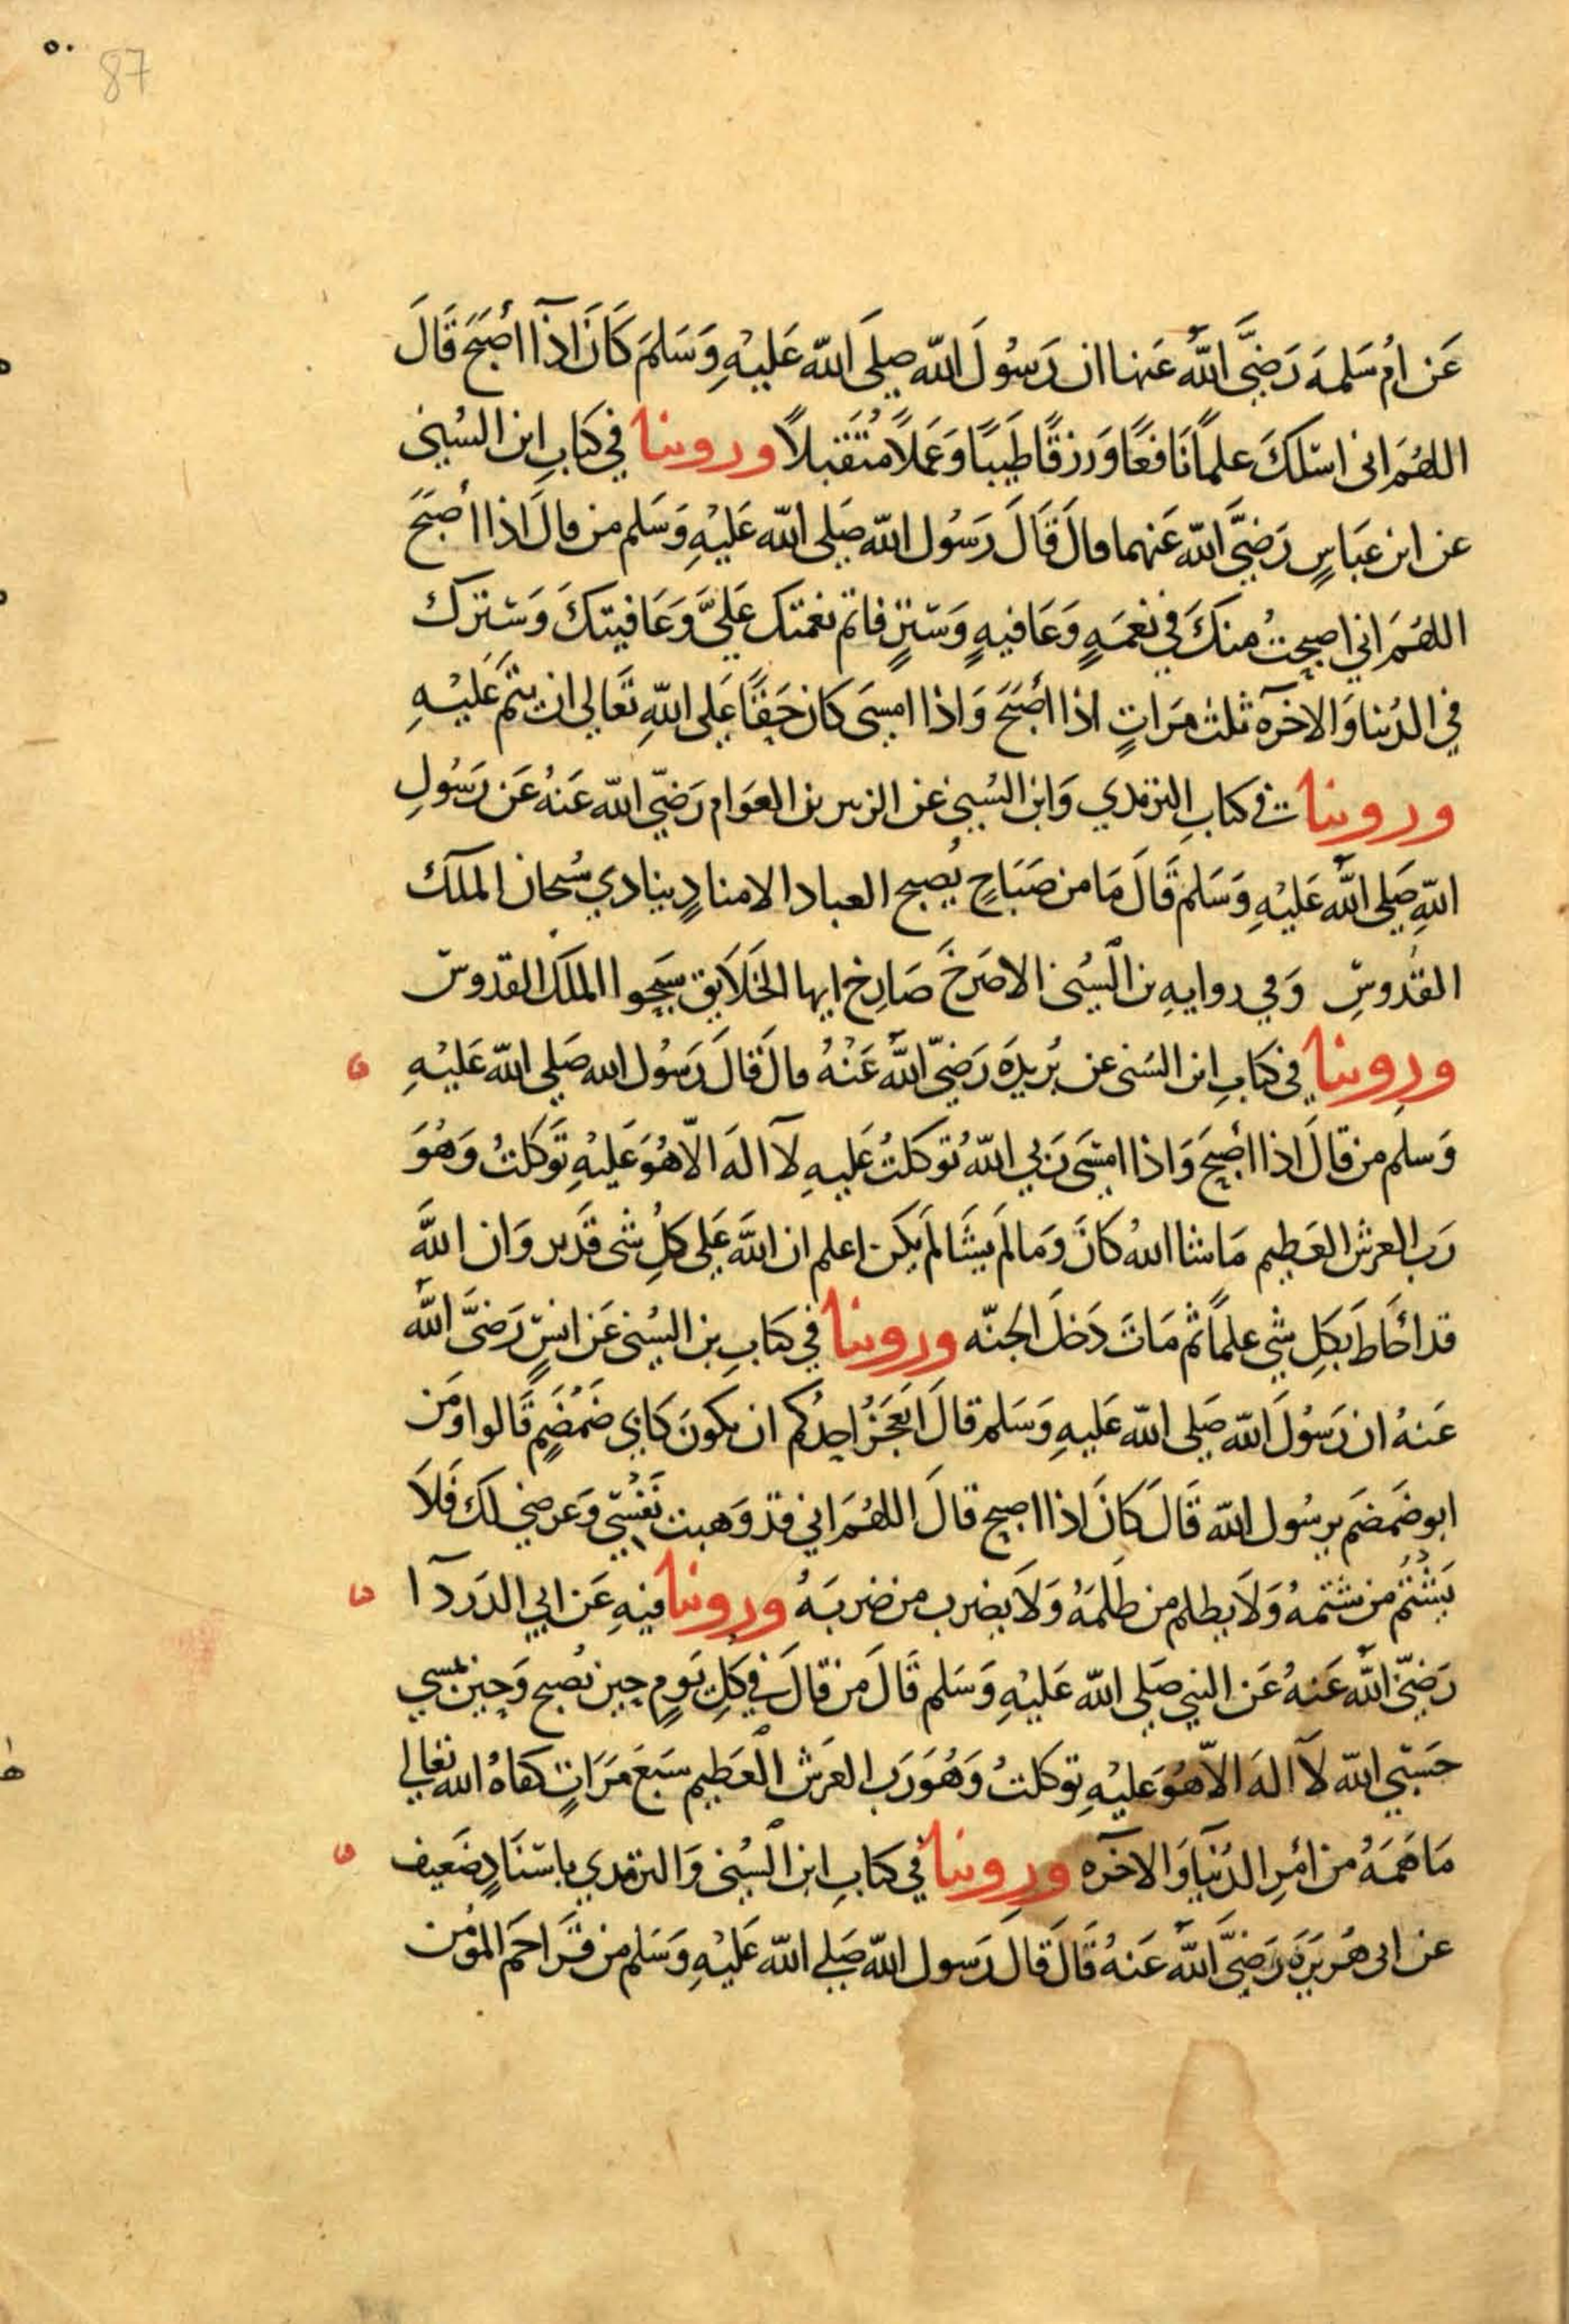 ٥٠
87
عَن امُ سَلمَه رَضيَّ اللَّهُ عَنها ان رَسُولَ اللّه صلَى اللّه عَليْهِ وَسَلمَ كَانَ اذَا أصبَحَ قَالَ
اللهُمَ انى اسْلكَ علماً نَافعًا وَرزقًا طَيبًا وَعَملاً مُتَقَبلاً وروينا في كتَابِ ابن السُني
عن ابن عبَاسٍ رَضيَّ اللّه عَنهما قالَ قَالَ رَسُول اللّه صَلى اللّه عَليْهِ وَسَلم من قالَ اذا أصبَحَ
اللهُمَ اني اصبحتُ منكَ في نعمَهٍ وَعَافيهٍ وَسَترٍ فاتم نعمتك عَليَّ وَعَافيتكَ وَسَتركَ
في الدُنيا وَالاخرَه ثلث مَرَاتٍ اذا أصبَحَ وَاذا امسَى كان حَقًا عَلى اللّهِ تَعَالى ان يتمَ عَليْهِ
وروينا في كتابِ الترمذي وَابن السُني عن الزبير بن العوَام رَضيّ اللّه عَنهُ عَن رَسُولِ
اللّهِ صَلى اللَّه عَليْهِ وَسَلم قَالَ مَا من صَبَاحٍ يُصبح العباد الا منادٍ ينادي سُبحان الملك
القُدوسِّ وَفي روايهِ بن السُنى الا صَرخَ صَارخ ايها الخَلَايق سَبحوا الملكَ القدوسّ
وروينا في كتَابِ ابن السَنى عن بُريدَه رَضيّ اللَّه عَنْهُ قالَ قَالَ رَسُول الله صَلى اللّه عَليْهِ
وَسَلم من قالَ اذا أصبَحَ وَاذا امسَى رَبي اللّهُ تَوكلتُ عَليهِ لآ الهَ الاّ هُوَ عَليهِ تَوَكلتُ وَهُوَ
رَب العرش العَظيم مَا شا اللهُ كانَ وَمَا لَم يَشَا لَم يَكن اعلم ان اللَّهَ عَلى كلِ شى قَدير وَان اللَّهَ
قد احَاطَ بكلِ شي علماً ثم مَاتَ دَخلَ الجنّه وروينا في كتَابِ بن السُنى عَن انسٍ رَضيَّ اللَّه
عَنهُ ان رَسُولَ اللّه صَلى اللّه عَليهِ وَسَلم قالَ ايَعجَزُ احدُكم ان يكونَ كابى ضَمُضَمٍ قَالوا وَمَن
ابو ضَمضَم يرسُول اللّه قَالَ كَانَ اذا اصبح قالَ اللهُمَ اني قد وَهبت نَفسّي وَعرضي لك فَلاَ
يَشْتُم من شتَمهُ وَلاَ يظلم من ظلمَهُ وَلاَ يضرب من ضربَهُ وروينا فيهِ عَن ابي الدَردَآ ا
رَضيّ اللَّه عَنهُ عَن النبي صَلى اللّه عَليْهِ وَسَلم قَالَ مَن قالَ في كلِ يَومٍ حين يُصبح وَحين يمسي
حَسّبي اللّه لآ الهَ الاّ هُوَ عَليْهِ توكلتُ وَهُوَ رَب العَرَش العَظيم سَبَعَ مَرَاتٍ كفاهُ الله تعالى
مَا هَمَهُ من امرِ الدُنيَا وَالاخرَه وروينا في كتابِ ابن السُنى وَالترمذي باسّنَادٍ ضَعيف
عن ابى هُريَرَه رَضيَّ اللَّه عَنهُ قَالَ قَالَ رَسول اللّه صَلى اللّه عَليْهِ وَسَلم من قَرَا حَم المؤمن